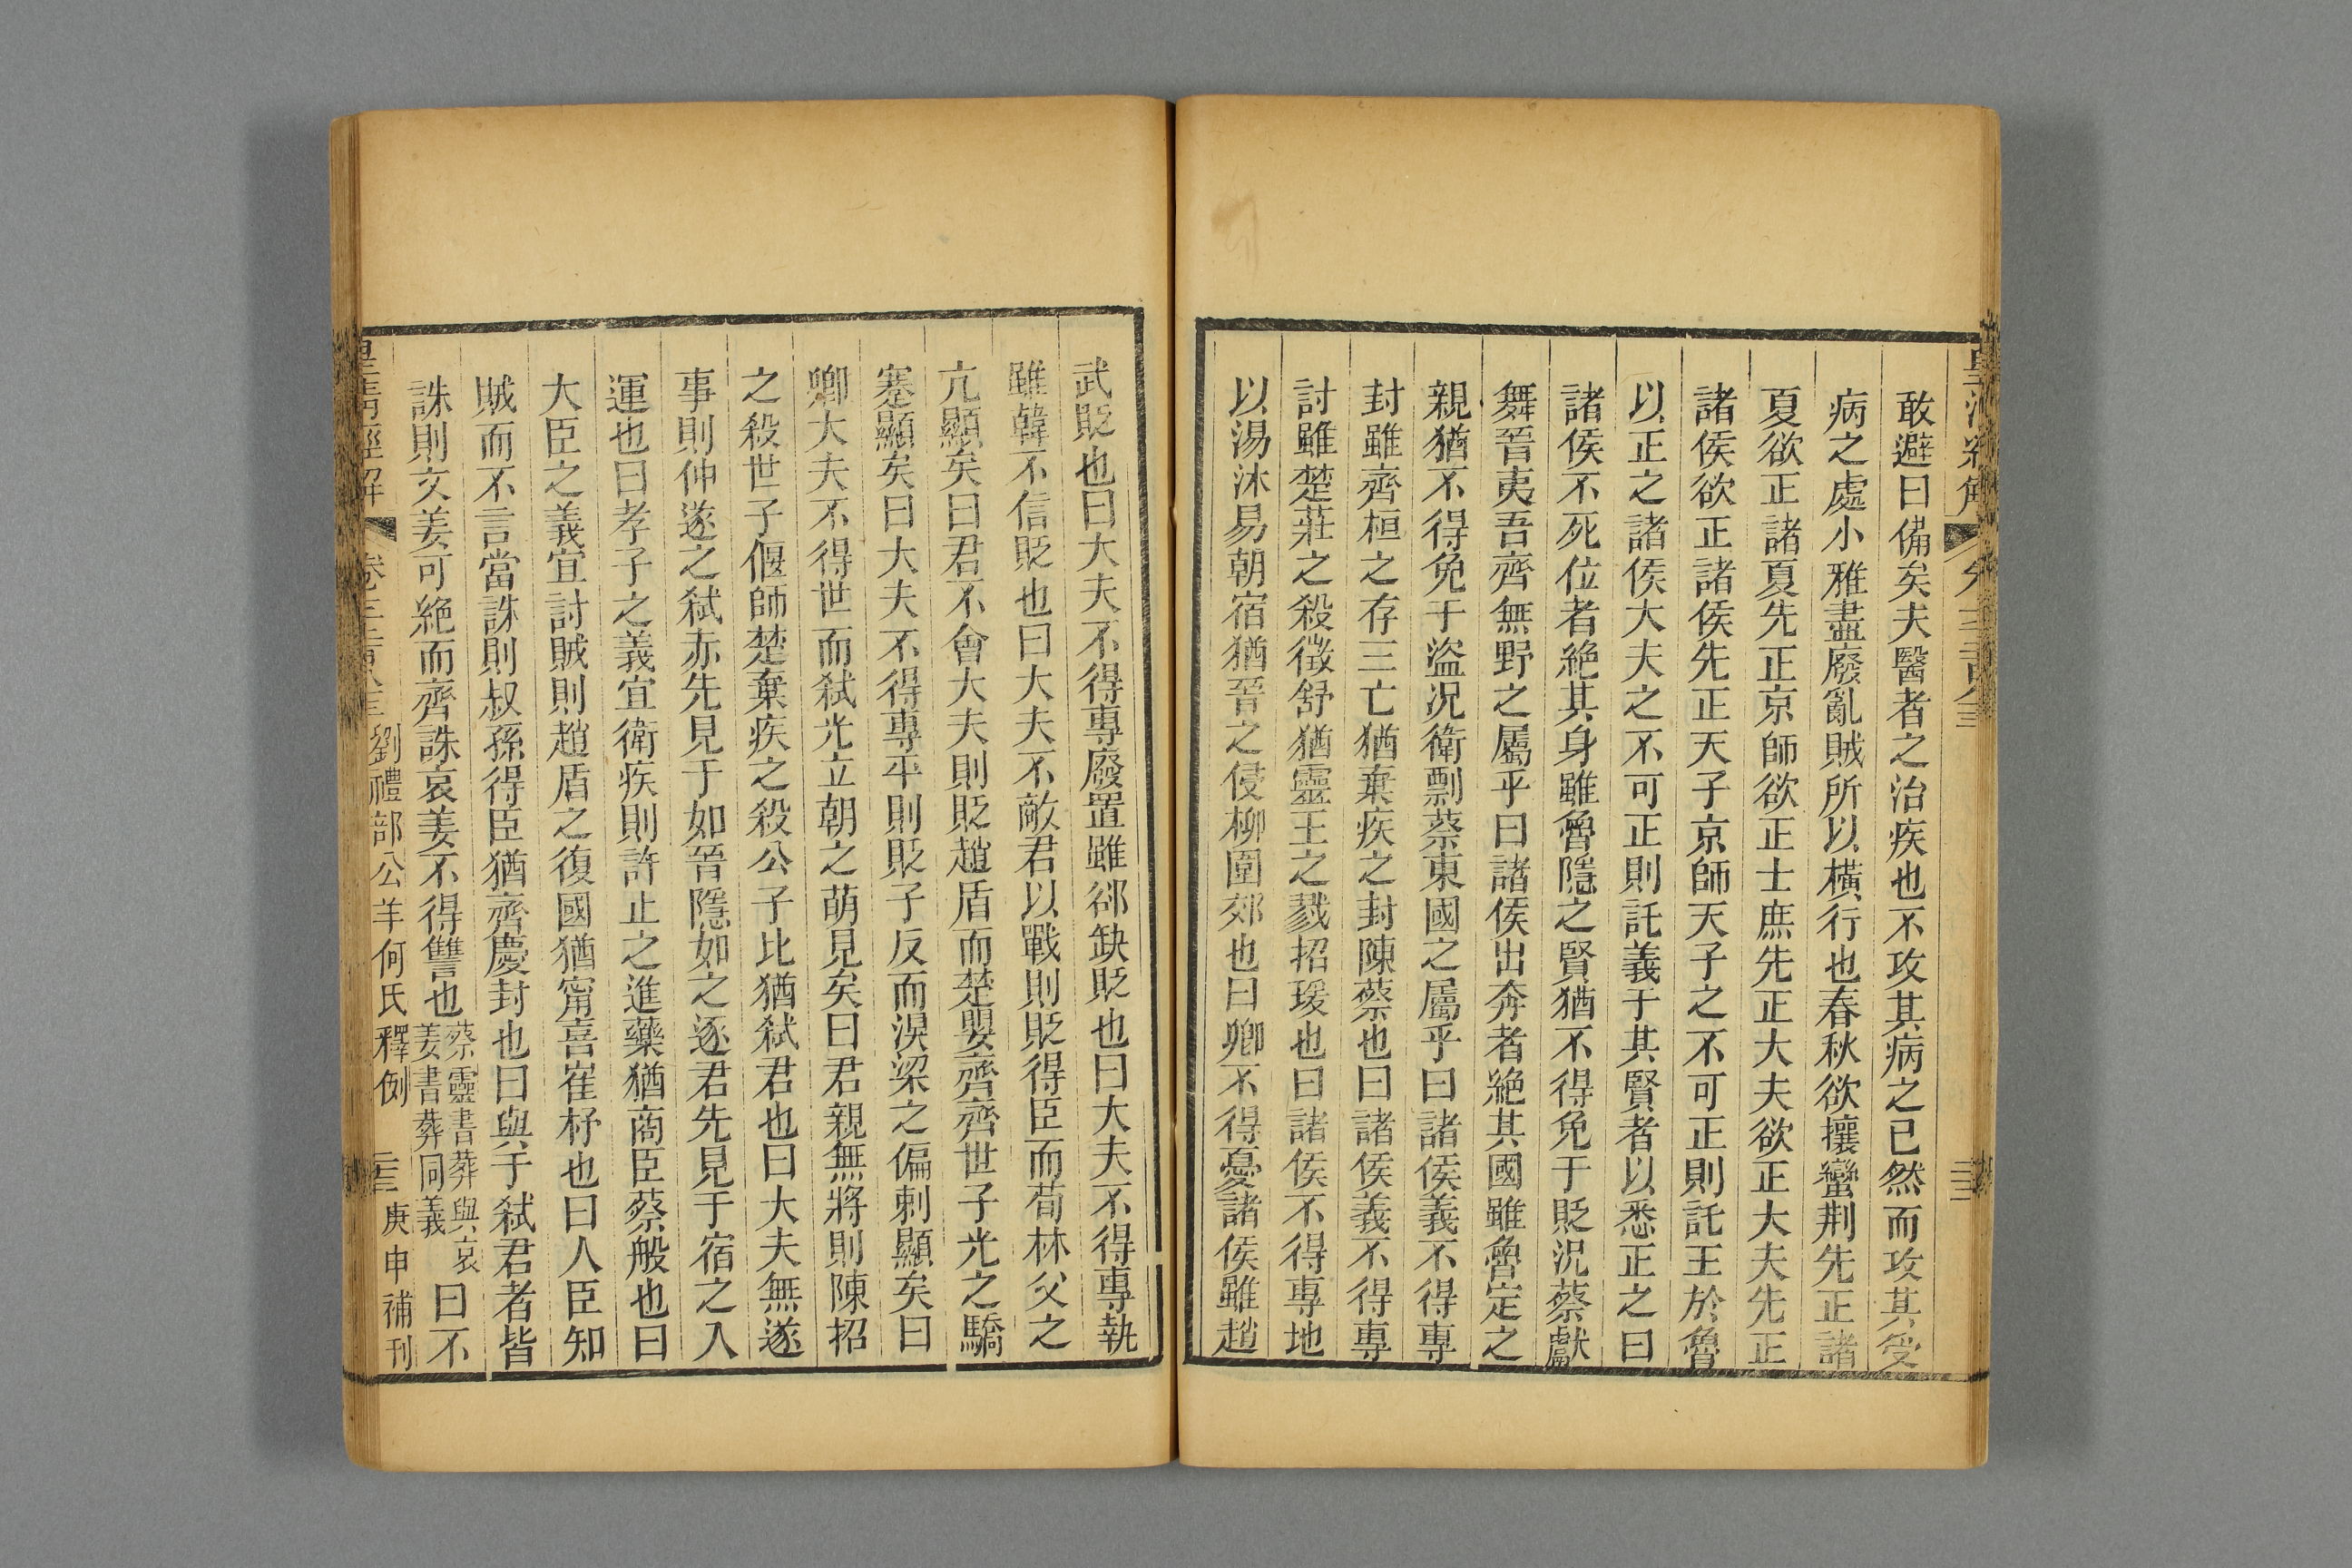 敢避曰備矣夫醫者之治疾也不攻其病之已然而攻其受
病之處小雅盡廢亂賊所以橫行也春秋欲攘蠻荆先正諸
夏欲正諸夏先正京師欲正士庶先正大夫欲正大夫先正
諸侯欲正諸侯先正天子京師天子之不可正則託王於魯
以正之諸侯大夫之不可正則託義于其賢者以悉正之曰
諸侯不死位者絶其身雖魯隱之賢猶不得免于貶況蔡獻
舞晉夷吾齊無野之屬乎曰諸侯出奔者絶其國雖魯定之
親猶不得免于盜況衛剽蔡東國之屬乎曰諸侯義不得專
封雖齊桓之存三亡猶棄疾之封陳蔡也曰諸侯義不得專
討雖楚莊之殺徵舒猶靈王之戮招瑗也曰諸侯不得專地
以湯沐易朝宿猶晉之侵柳圍郊也曰卿不得憂諸侯雖趙
武貶也曰大夫不得專廢置雖郤缺貶也曰大夫不得專執
雖韓不信貶也曰大夫不敵君以戰則貶得臣而荀林父之
亢顯矣曰君不會大夫則貶趙盾而楚嬰齊齊世子光之驕
蹇顯矣曰大夫不得專平則貶子反而湨梁之偏刺顯矣曰
卿大夫不得世而弑光立朝之萌見矣曰君親無將則陳招
之殺世子偃師楚棄疾之殺公子比猶弑君也曰大夫無遂
事則仲遂之弑赤先見于如晉隱如之逐君先見于宿之入
運也曰孝子之義宜衛疾則許止之進藥猶商臣蔡般也曰
大臣之義宜討賊則趙盾之復國猶甯喜崔杼也曰人臣知
賊而不言當誅則叔孫得臣猶齊慶封也曰與于弑君者皆
誅則文姜可絶而齊誅哀姜不得讐也蔡靈書葬與哀姜書葬同義曰不
皇清經解 卷千二百八十三 劉禮部公羊何氏釋例 二十三 庚申補刊